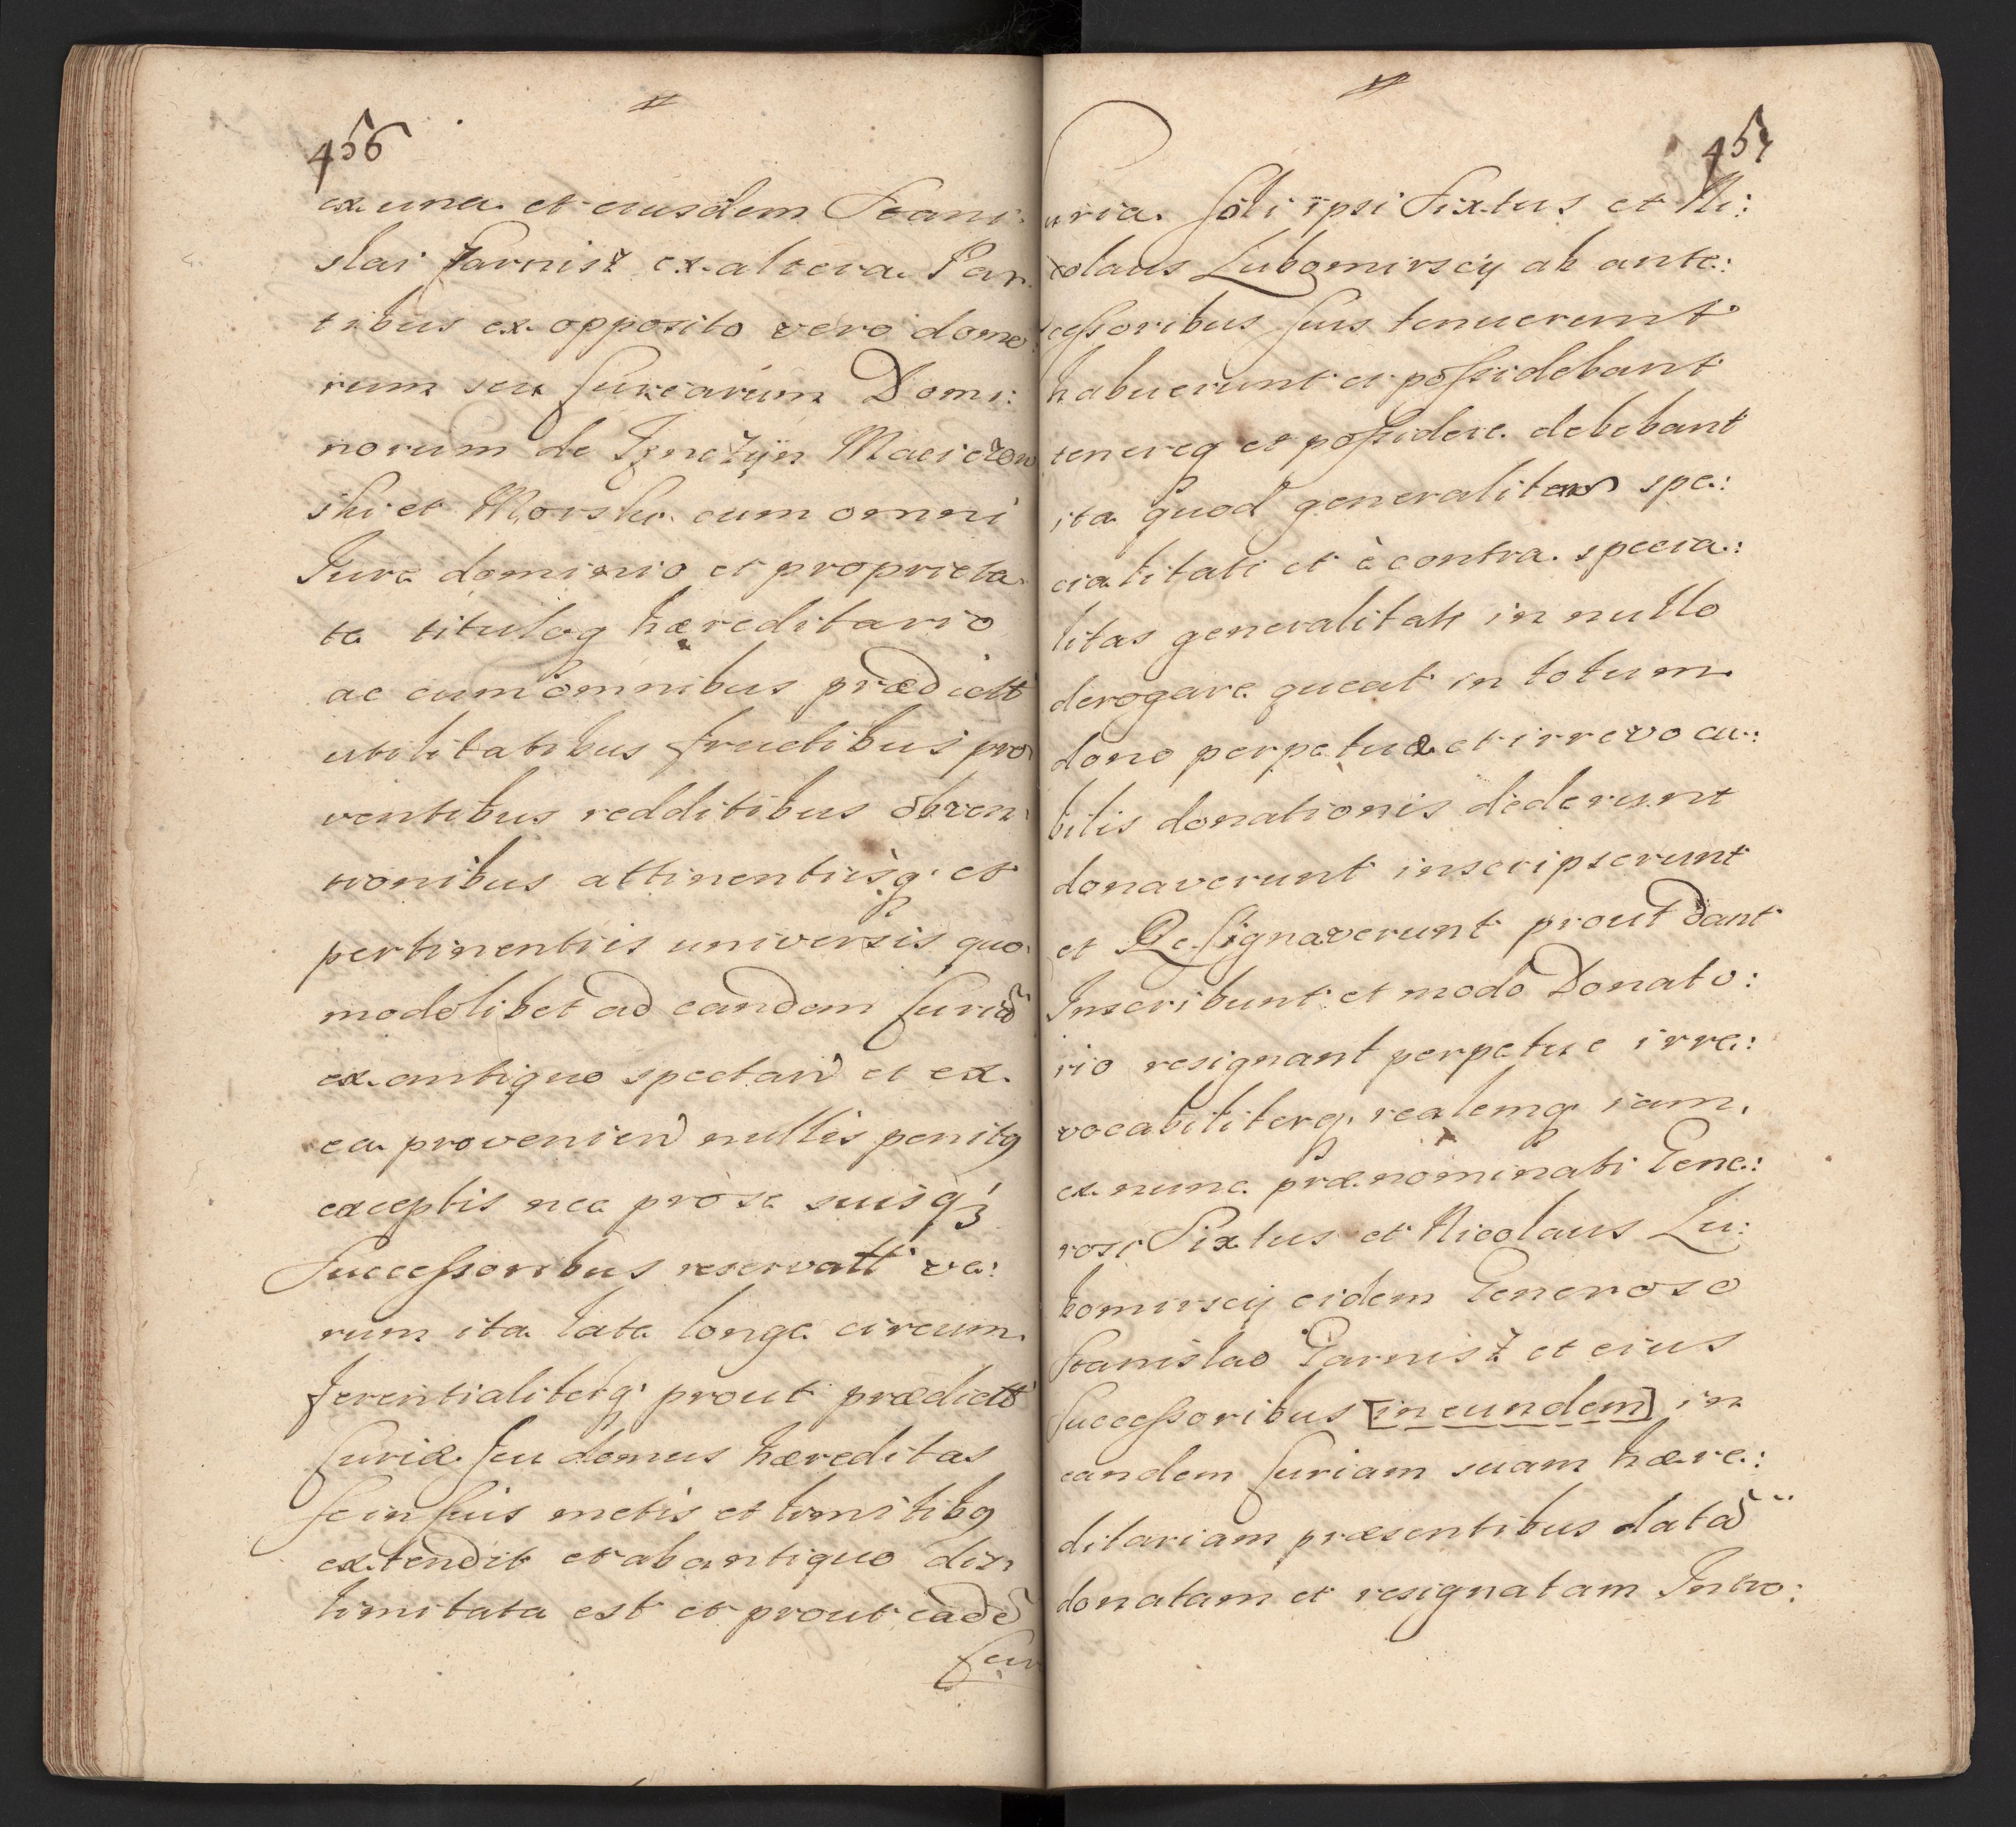 456
ex una et eiusdem Stani:
slai Garnisz ex altera Par
tibus ex opposito vero domo:
rum seu Curiarum Domi:
norum de Maciezow
ski et Morski cum omni
Jure dominio et proprieta
te tituloq hæreditario
ac cum omnibus prædictt
utilitatibus fructibus pro
ventibus redditibus obven
tionibus attinentiisq et
pertinentiis universis quo
modolibet ad eandem Curiã
ex antiquo spectan et ex
ea provenien nullis penitq
exceptis nec pro se suisq3
Successoribus reservatt ve:
rum ita late longe circum
ferentialiterq prout prædictt
Curia seu domus hæreditas
se in suis metis et limitibq
extendit et ab antiquo dis
limitata est et prout eadẽ
Cur
457
uria soli ipsi Sixtus et Ni:
colaus Lubomirscy ab ante:
cessoribus suis tenuerunt
habuerunt et possidebant
tenereq et possidere debebant
ita quod generalitas spe:
cialitati et è contra specia:
litas generalitati in nullo
derogare queat in totum
dono perpetuæ et irrevoca:
bilis donationis dederunt
donaverunt inscripserunt
et Resignaverunt prout dant
Inscribunt et modo Donato:
rio resignant perpetue irre:
vocabiliterq realemq iam
ex nunc prænominati Gene:
rosi Sixtus et Nicolaus Lu:
bomirscy eidem Generoso
Stanislao Garnisz et eius
Successoribus [in eundem] in
eandem Curiam suam hære:
ditariam præsentibus datã
donatam et resignatam Intro: